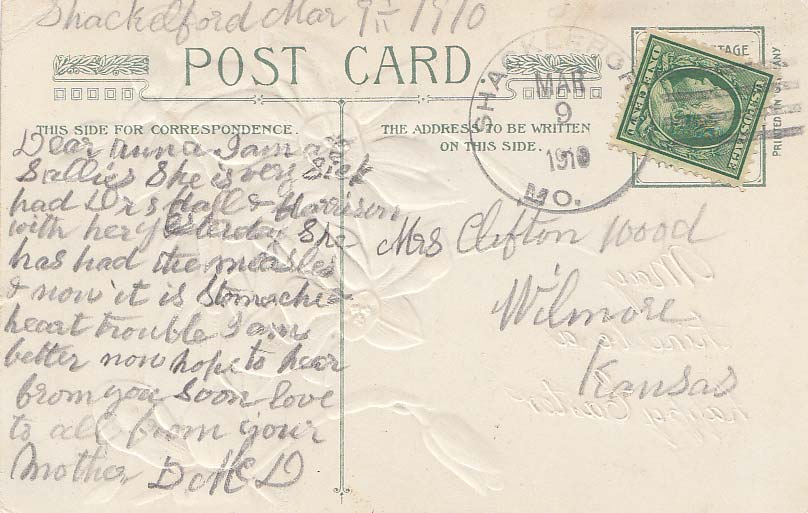 Shackelford Mar 9 1910
POST CARD
THIS SIDE FOR CORRESPONDENCE.
THE ADDRESS TO BE WRITTEN
ON THIS SIDE.
SHACKLEFOR
MAR
9
1910
MO.
POSTAGE
PRINTED IN GERMANY
Dear I am at
Sallies She is very Sick
had Drs & Harrison
with her yesterday She
has had the measles
& now it is Stomache &
heart trouble I am
better now hope to hear
from you Soon love
to all from your
Mother
Mrs Clifton Wood
Wilmore
Kansas